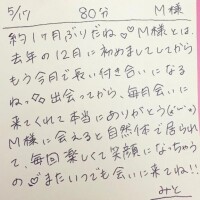 5/17 80分 M様
約1ヶ月ぶりだね♡♡M様とは、
去年の12月に初めましてしてから
もう今日で長い付き合いになる
ねっ♪♪出会ってから、毎月会いに
来てくれて本当にありがとう(*´`*)
M様に会えると自然体で居られ
て、毎回楽しくて笑顔になっちゃう
の♡またいつでも会いに来てね!!
みと